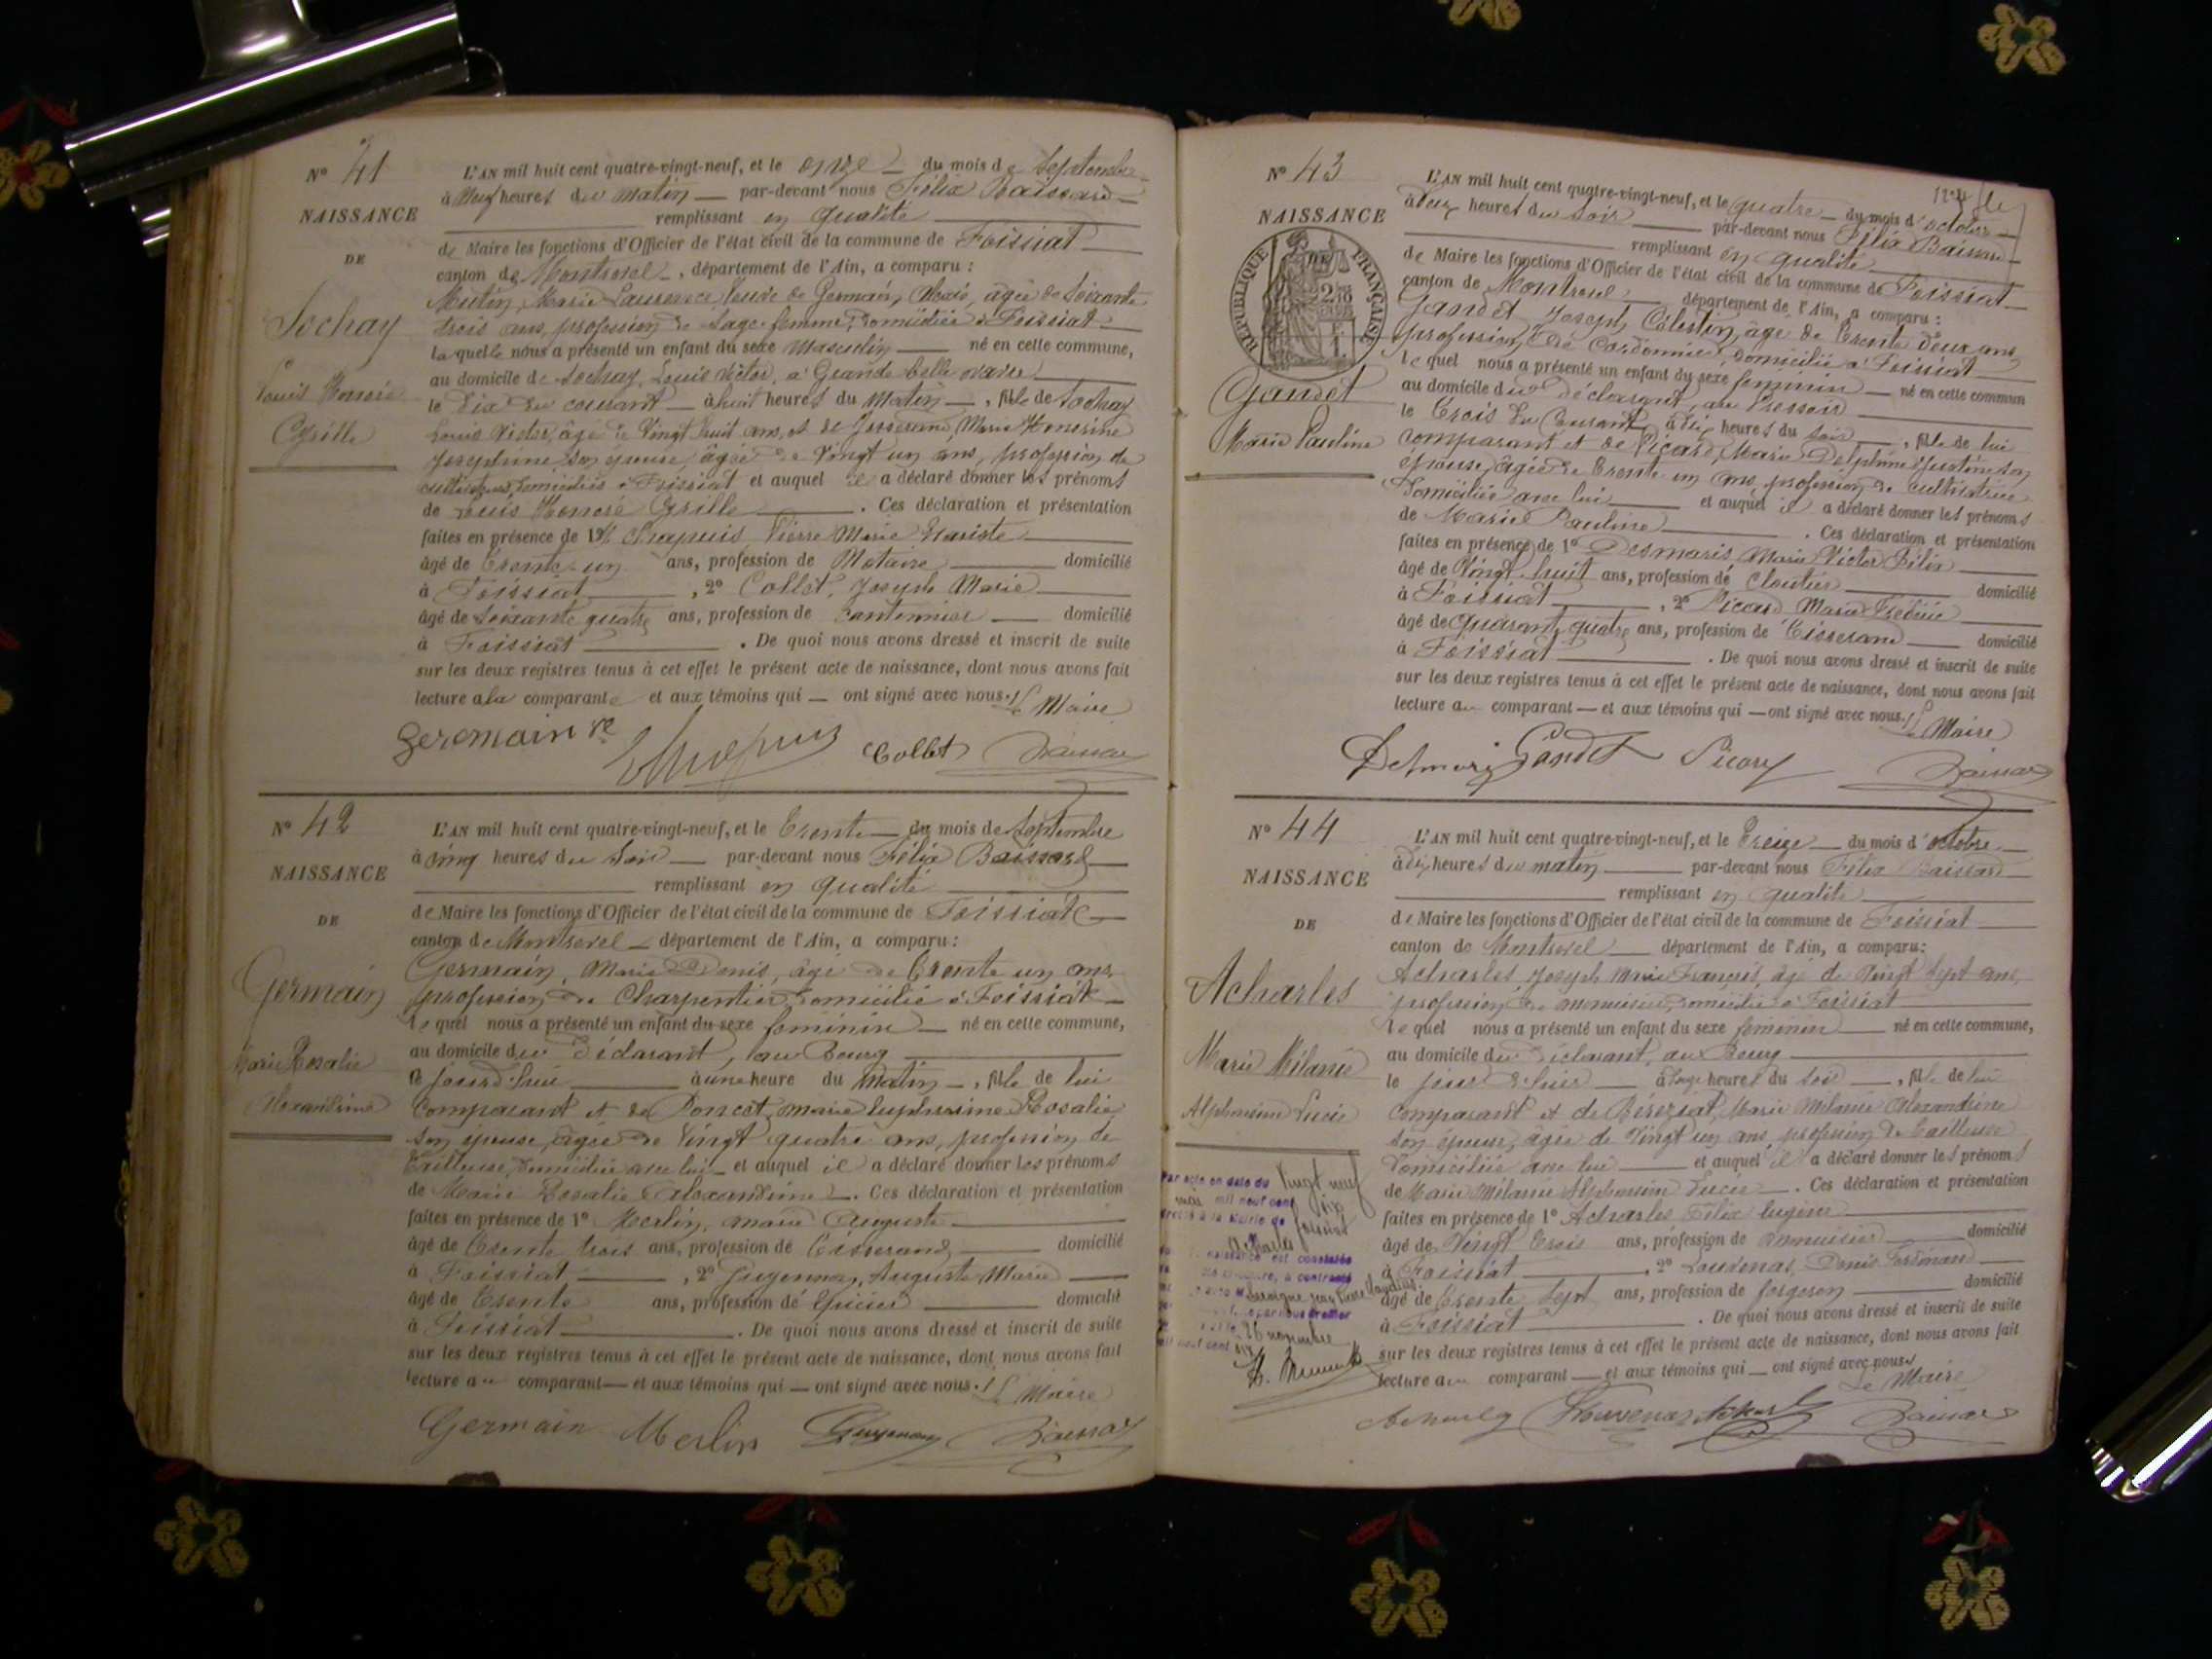 N° 41
NAISSANCE
DE
Sochay
Louis Honoré
Cyrille
L'AN mil huit cent quatre-vingt-neuf, et le onze du mois de Septembre
à Neuf heures du matin par-devant nous Félix Baissard
remplissant en qualité
de Maire les fonctions d'Officier de l'état civil de la commune de Foissiat
canton de Montrevel, département de l'Ain, a comparu :
Mutin, Marie Laurence veuve de Germain, Alexis, âgée de soixante
trois ans, profession de sage-femme, domiciliée à Foissiat
laquelle nous a présenté un enfant du sexe masculin né en cette commune,
au domicile de Sochay, Louis Victor, à Grande belle
le dix du courant à huit heures du matin, fils de Sochay
Louis Victor, âgé de Vingt huit ans, et de Josserand, Marie
Josephine son épouse, âgée de Vingt un ans, profession de
cultivateurs, domiciliés à Foissiat et auquel il a déclaré donner les prénoms
de Louis Honoré Cyrille. Ces déclaration et présentation
faites en présence de 1° M. Chapuis, Pierre Marie
âgé de trente-un ans, profession de Notaire domicilié
à Foissiat, 2° Collet, Joseph Marie
âgé de soixante quatre ans, profession de cantonnier domicilié
à Foissiat. De quoi nous avons dressé et inscrit de suite
sur les deux registres tenus à cet effet le présent acte de naissance, dont nous avons fait
lecture à la comparante et aux témoins qui ont signé avec nous. Le Maire
Germain ve Chapuis Collet Baissard
N° 42
NAISSANCE
DE
Germain
Marie Rosalie
Alexandrine
L'AN mil huit cent quatre-vingt-neuf, et le trente du mois de Septembre
à cinq heures du soir par-devant nous Félix Baissard
remplissant en qualité
de Maire les fonctions d'Officier de l'état civil de la commune de Foissiat
canton de Montrevel département de l'Ain, a comparu :
Germain, Marie Denis, âgé de trente un ans
profession de Charpentier, domicilié à Foissiat
lequel nous a présenté un enfant du sexe féminin né en cette commune,
au domicile du déclarant, au Bourg
le jourd'hui à une heure du matin, fille de lui
comparant et de Poncet, Marie Euphrosine Rosalie
son épouse, âgée de Vingt quatre ans, profession de
tailleuse, domiciliée avec lui et auquel il a déclaré donner les prénoms
de Marie Rosalie Alexandrine. Ces déclaration et présentation
faites en présence de 1° Merlin, Marie Auguste
âgé de trente trois ans, profession de tisserand domicilié
à Foissiat, 2° Guyennon, Auguste Marie
âgé de trente ans, profession de épicier domicilié
à Foissiat. De quoi nous avons dressé et inscrit de suite
sur les deux registres tenus à cet effet le présent acte de naissance, dont nous avons fait
lecture au comparant et aux témoins qui ont signé avec nous. Le Maire
Germain Merlin Guyennon Baissard
N° 43
NAISSANCE
DE
RÉPUBLIQUE FRANÇAISE
Gandet
Marie Pauline
L'AN mil huit cent quatre-vingt-neuf, et le quatre du mois d'octobre
à deux heures du soir par-devant nous Félix Baissard
remplissant en qualité
de Maire les fonctions d'Officier de l'état civil de la commune de Foissiat
canton de Montrevel département de l'Ain, a comparu :
Gandet Joseph Célestin, âgé de trente deux ans
profession de cordonnier, domicilié à Foissiat
lequel nous a présenté un enfant du sexe féminin né en cette commun
au domicile du déclarant, au Pressoir
le trois du courant à dix heures du soir, fille de lui
comparant et de Picard, Marie Delphine Justine son
épouse, âgée de trente un ans, profession de cultivatrice
domiciliée avec lui et auquel il a déclaré donner les prénoms
de Marie Pauline. Ces déclaration et présentation
faites en présence de 1° Desmaris Marie Victor Félix
âgé de Vingt huit ans, profession de cloutier domicilié
à Foissiat, 2° Picard Marie
âgé de quarante quatre ans, profession de tisserand domicilié
à Foissiat. De quoi nous avons dressé et inscrit de suite
sur les deux registres tenus à cet effet le présent acte de naissance, dont nous avons fait
lecture au comparant et aux témoins qui ont signé avec nous. Le Maire
Desmaris Gandet Picard Baissard
N° 44
NAISSANCE
DE
Acharles
Marie Mélanie
Alphonsine Lucie
Par acte en date du Vingt neuf
mil neuf cent six
Foissiat
Acharles
26 novembre
L'AN mil huit cent quatre-vingt-neuf, et le treize du mois d'octobre
à dix heures du matin par-devant nous Félix Baissard
remplissant en qualité
de Maire les fonctions d'Officier de l'état civil de la commune de Foissiat
canton de Montrevel département de l'Ain, a comparu :
Acharles, Joseph Marie François, âgé de Vingt sept ans,
profession de menuisier, domicilié à Foissiat
lequel nous a présenté un enfant du sexe féminin né en cette commune,
au domicile du déclarant, au Bourg
le jour d'hier à heures du soir, fille de lui
comparant et de Béréziat, Marie Mélanie Alexandrine
son épouse, âgée de Vingt un ans, profession de tailleuse
domiciliée avec lui et auquel il a déclaré donner les prénoms
de Marie Mélanie Alphonsine Lucie. Ces déclaration et présentation
faites en présence de 1° Acharles Félix Eugène
âgé de Vingt trois ans, profession de menuisier domicilié
à Foissiat, 2° Denis Ferdinand
âgé de trente sept ans, profession de forgeron domicilié
à Foissiat. De quoi nous avons dressé et inscrit de suite
sur les deux registres tenus à cet effet le présent acte de naissance, dont nous avons fait
lecture au comparant et aux témoins qui ont signé avec nous.
Le Maire
Baissard